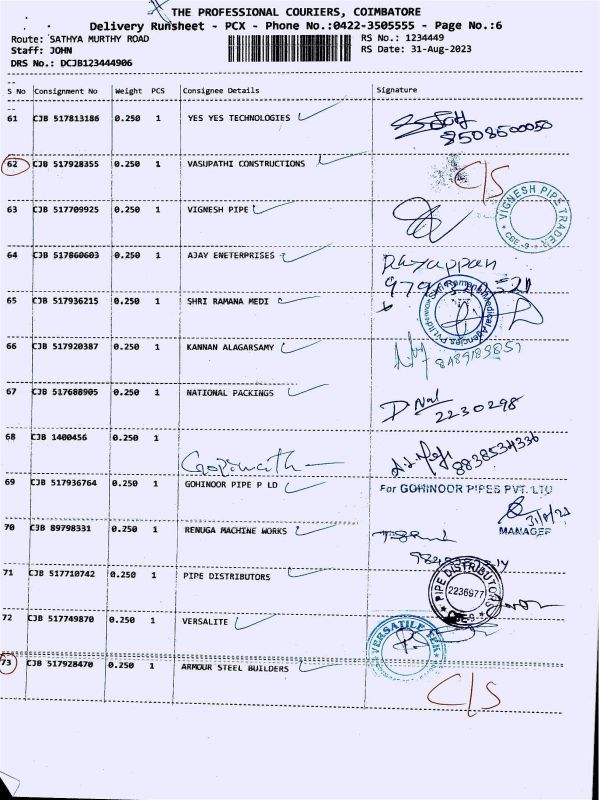 THE PROFESSIONAL COURIERS, COIMBATORE
Delivery Runsheet - PCX - Phone No.:0422-3505555 - Page No.:6
Route: SATHYA MURTHY ROAD RS No.: 1234449
Staff: JOHN RS Date: 31-Aug-2023
DRS No.: DCJB123444906
S No Consignment No Weight PCS Consignee Details Signature
61 CJB 517813186 0.250 1 YES YES TECHNOLOGIES
8508500050
62 CJB 517928355 0.250 1 VASUPATHI CONSTRUCTIONS C/S
63 CJB 517709925 0.250 1 VIGNESH PIPE
VIGNESH PIPE TRADER
CBE-9
64 CJB 517860603 0.250 1 AJAY ENETERPRISES Rayappan
65 CJB 517936215 0.250 1 SHRI RAMANA MEDI
66 CJB 517920387 0.250 1 KANNAN ALAGARSAMY
67 CJB 517688905 0.250 1 NATIONAL PACKINGS
2230298
68 CJB 1400456 1 Gopinath
8838534336
69 CJB 517936764 0.250 1 GOHINOOR PIPE P LD For GOHINOOR PIPES PVT. LTD
31/8/23
MANAGER
70 CJB 89798331 0.250 1 RENUGA MACHINE WORKS
71 CJB 517710742 0.250 1 PIPE DISTRIBUTORS
PIPE DISTRIBUTORS
2236977
CBE-9
72 CJB 517749870 0.250 1 VERSALITE
73 CJB 517928470 0.250 1 ARMOUR STEEL BUILDERS
C/S